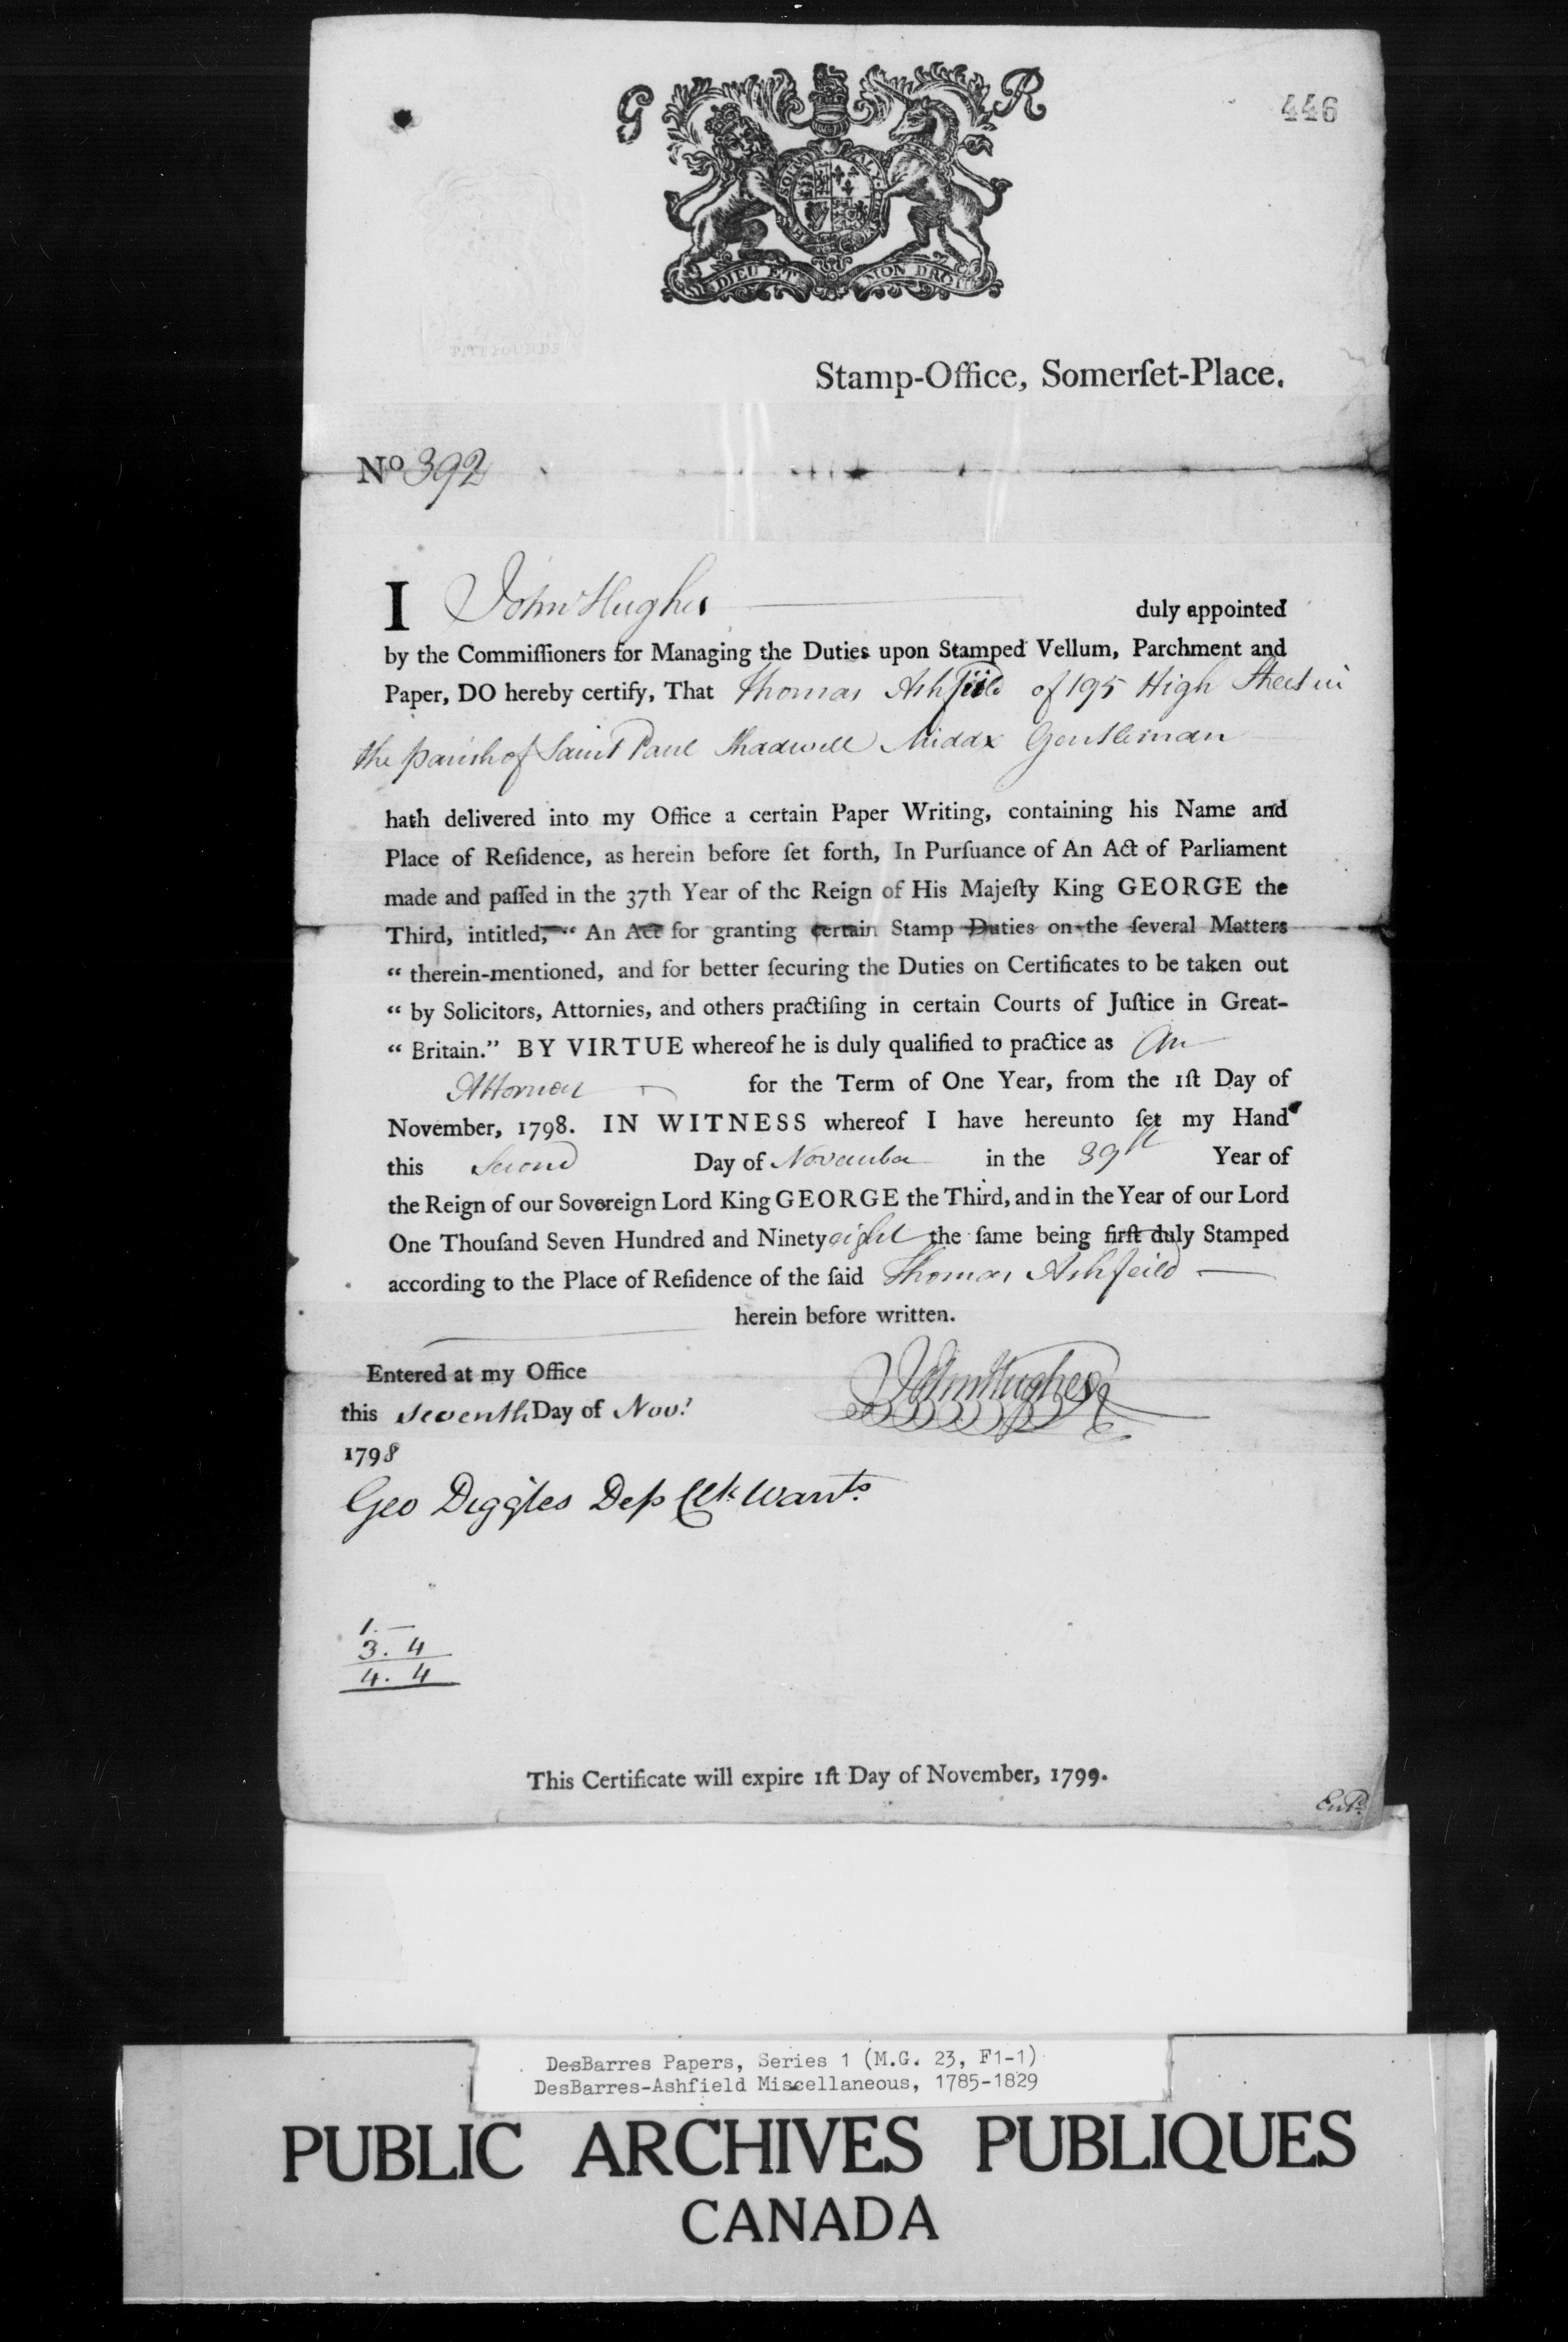 446
G R
DIEU ET MON DROIT
FIVE POUNDS
Stamp-Office, Somerſet-Place.
No 392
I John Hughes duly appointed
by the Commiſſioners for Managing the Duties upon Stamped Vellum, Parchment and
Paper, DO hereby certify, That Thomas Ashfeild of 195 High Street in
the parish of Saint Paul Shadwell Middx Gentleman
hath delivered into my Office a certain Paper Writing, containing his Name and
Place of Reſidence, as herein before ſet forth, In Purſuance of An Act of Parliament
made and paſſed in the 37th Year of the Reign of His Majeſty King GEORGE the
Third, intitled, “ An Act for granting certain Stamp Duties on the ſeveral Matters
“ therein-mentioned, and for better ſecuring the Duties on Certificates to be taken out
“ by Solicitors, Attornies, and others practiſing in certain Courts of Juſtice in Great-
“ Britain.” BY VIRTUE whereof he is duly qualified to practice as An
Attorney for the Term of One Year, from the 1ſt Day of
November, 1798. IN WITNESS whereof I have hereunto ſet my Hand
this Second Day of November in the 39th Year of
the Reign of our Sovereign Lord King GEORGE the Third, and in the Year of our Lord
One Thouſand Seven Hundred and Ninety eight the ſame being firſt duly Stamped
according to the Place of Reſidence of the ſaid Thomas Ashfeild
herein before written.
Entered at my Office
John Hughes
this Seventh Day of Novr
1798
Geo Diggles Dep Clk Warrts
1. —
3. 4
4. 4
This Certificate will expire 1ſt Day of November, 1799.
DesBarres Papers, Series 1 (M.G. 23, F1-1)
DesBarres-Ashfield Miscellaneous, 1785-1829
PUBLIC ARCHIVES PUBLIQUES
CANADA